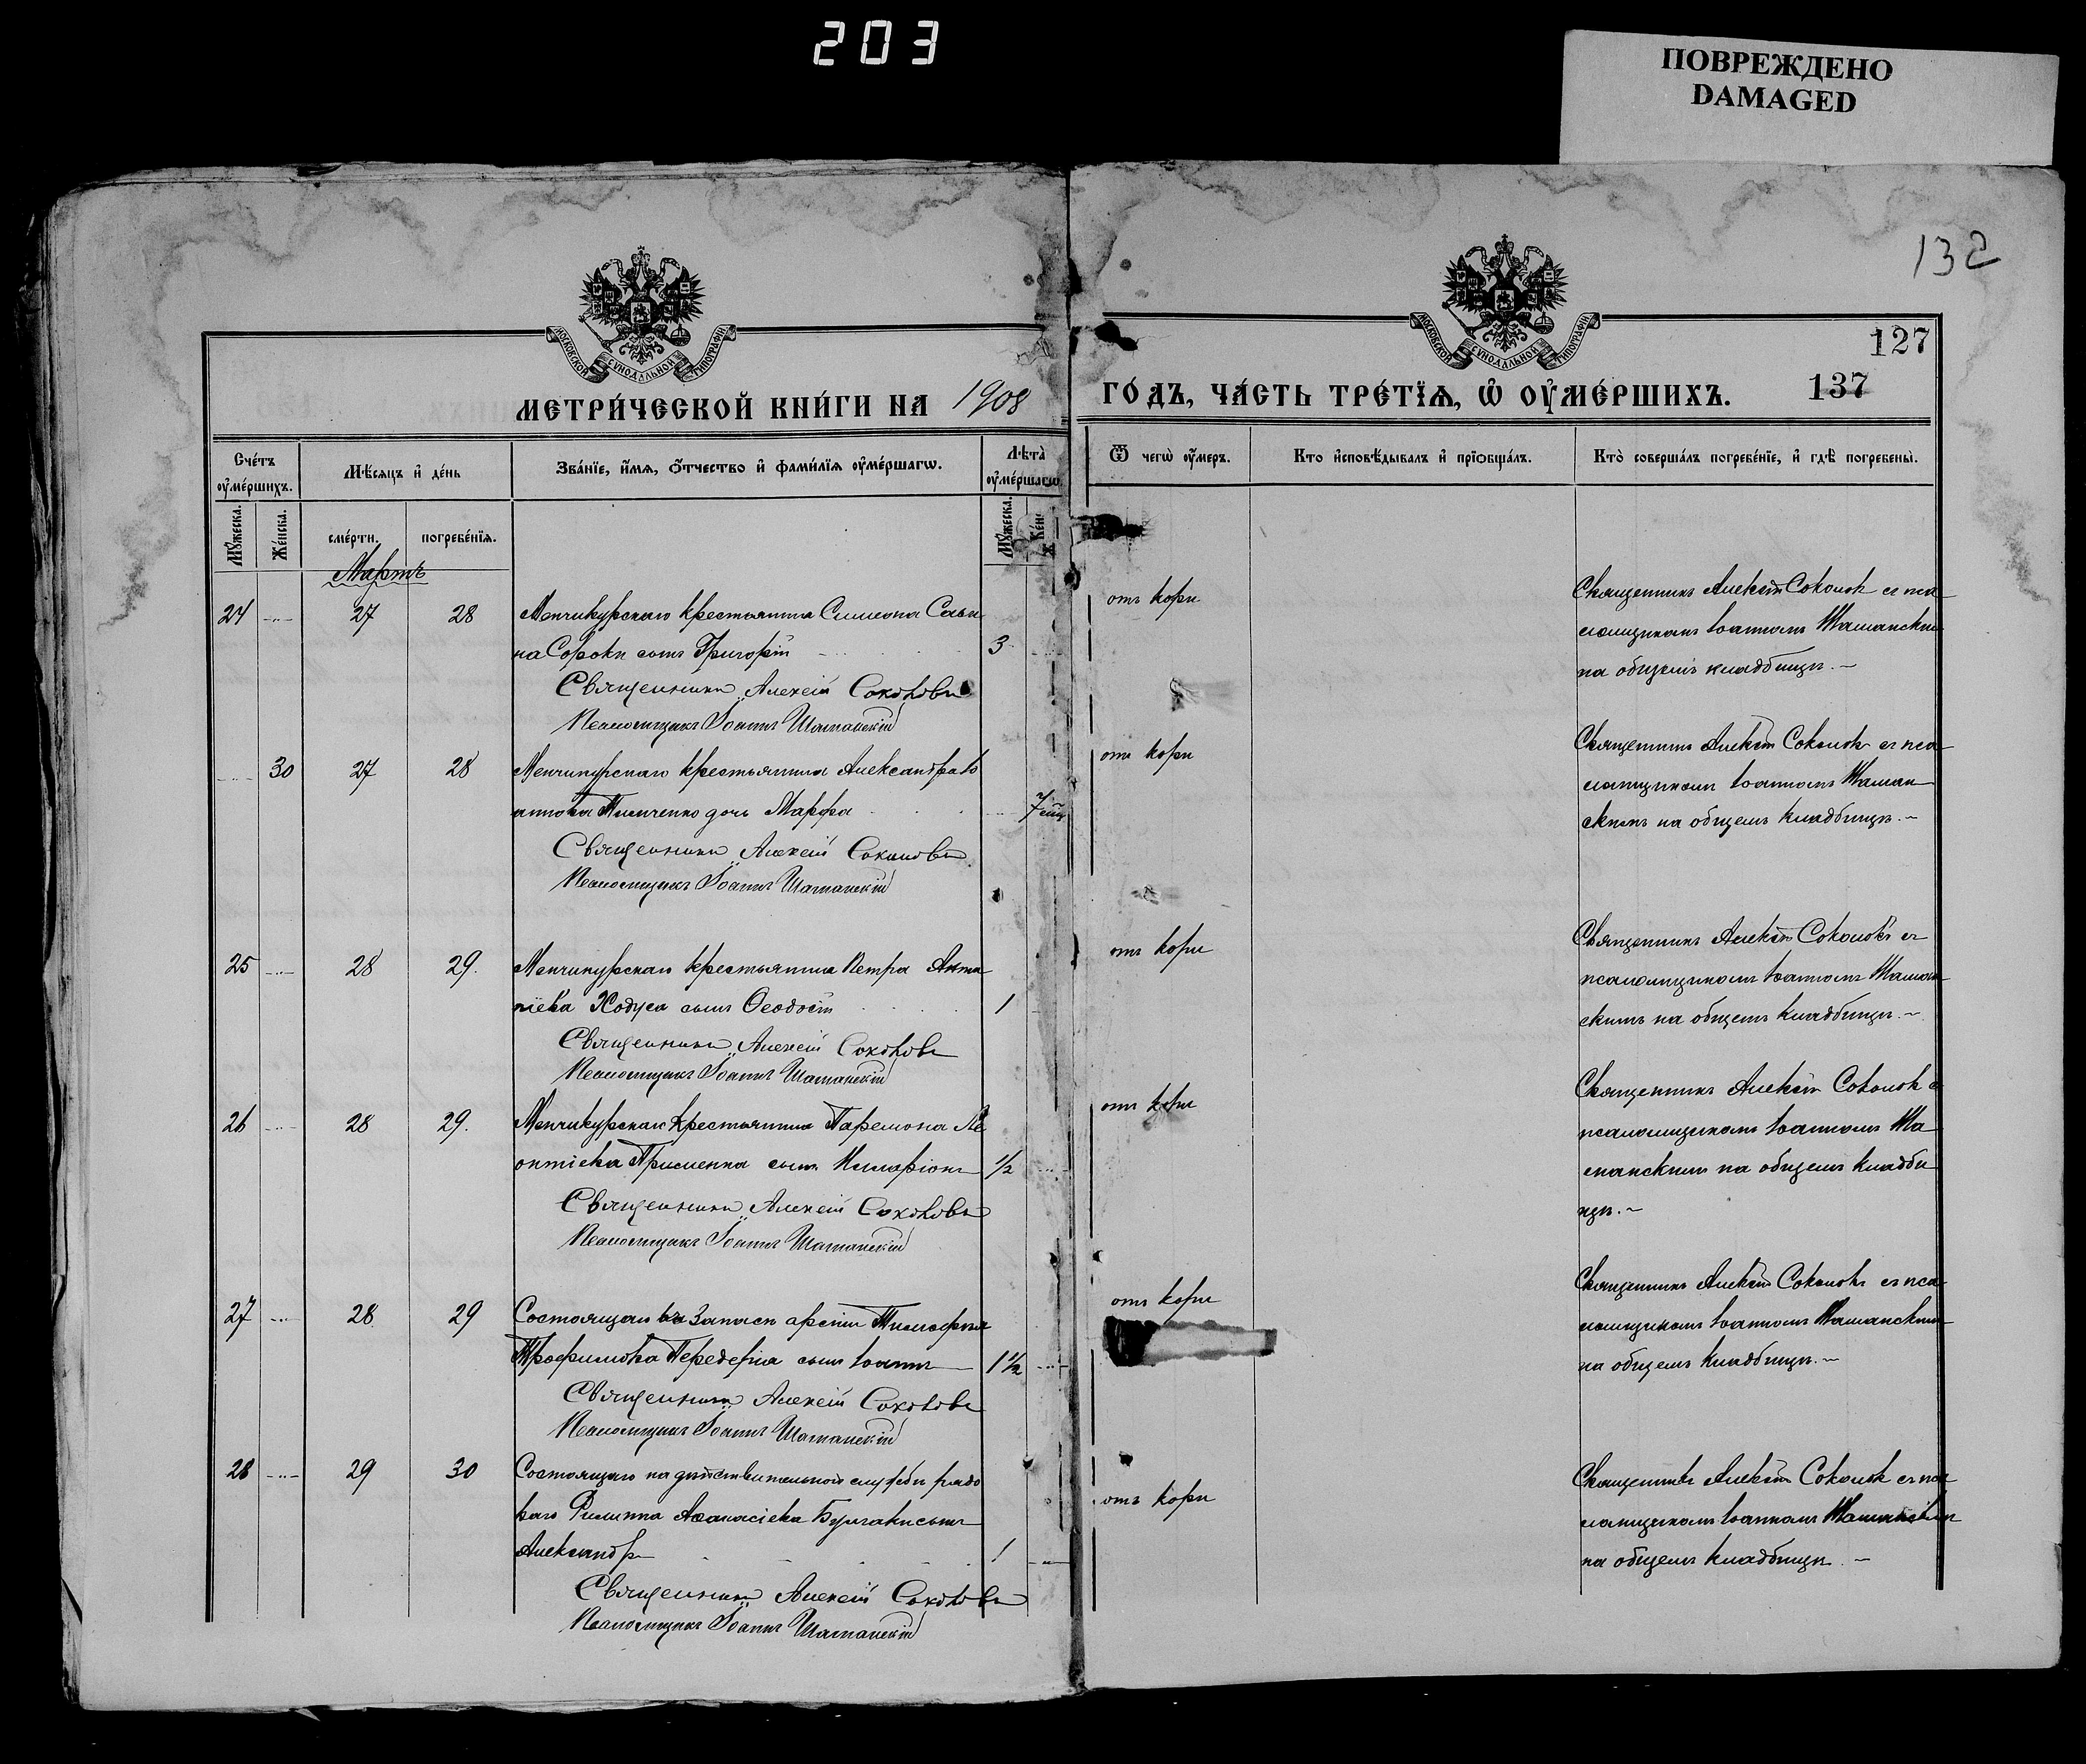 203
ПОВРЕЖДЕНО
DAMAGED
132
МОСКОВСКОЙ СУНОДАЛЬНОЙ ТИПОГРАФІИ
МОСКОВСКОЙ СУНОДАЛЬНОЙ ТИПОГРАФІИ
127
МЕТРИ́ЧЕСКОЙ КНИ́ГИ НА 1908 ГО́ДЪ, ЧА́СТЬ ТРЕ́ТЇѦ, Ѡ҆ ОУ҆МЕ́РШИХЪ. 137
Сче́тъ оу҆ме́ршихъ.
Мѣ́сяцъ и҆ де́нь
Зва́нїе, и҆́мѧ, ѻ҆́тчество и҆ фами́лїѧ оу҆ме́ршагѡ.
Лѣта̀ оу҆ме́ршагѡ
Ѿ чегѡ̀ оу҆́меръ.
Кто и҆сповѣ́дывалъ и҆ прїѡбща́лъ.
Кто̀ соверша́лъ погребе́нїе, и҆ гдѣ̀ погребены̀.
Мꙋ́жеска.
Же́нска.
сме́рти.
погребе́нїѧ.
Мꙋ́жеска.
Же́н
Мартъ
24 27 28 Менчикурскаго крестьянина Симеона Савы
на Сороки сынъ Григорій 3
Священникъ Алексій Соколовъ
Псаломщикъ Іоаннъ Шаманскій
отъ кори
Священникъ Алексій Соколовъ съ пса
ломщикомъ Іоанномъ Шаманскимъ
на общемъ кладбищѣ.
30 27 28 Менчикурскаго крестьянина Александра Іо
аннова Тимченко дочь Марфа 7
Священникъ Алексій Соколовъ
Псаломщикъ Іоаннъ Шаманскій
отъ кори
Священникъ Алексій Соколовъ съ пса
ломщикомъ Іоанномъ Шаман
скимъ на общемъ кладбищѣ.
25 28 29. Менчикурскаго крестьянина Петра
Ходуса сынъ Ѳеодосій 1
Священникъ Алексій Соколовъ
Псаломщикъ Іоаннъ Шаманскій
отъ кори
Священникъ Алексій Соколовъ съ
псаломщикомъ Іоанномъ Шаман
скимъ на общемъ кладбищѣ.
26 28 29. Менчикурскаго крестьянина Парамона Ле
онтіева Применка сынъ Иларіонъ 1/2
Священникъ Алексій Соколовъ
Псаломщикъ Іоаннъ Шаманскій
отъ кори
Священникъ Алексій Соколовъ с
псаломщикомъ Іоанномъ Ша
манскимъ на общемъ кладби
щѣ.
27 28 29 Состоящаго въ запасѣ арміи Тимофея
Трофимова Передерія сынъ Іоаннъ 1 1/2
Священникъ Алексій Соколовъ
Псаломщикъ Іоаннъ Шаманскій
отъ кори
Священникъ Алексій Соколовъ съ пса
ломщикомъ Іоанномъ Шаманскимъ
на общемъ кладбищѣ.
28 29 30 Состоящаго на дѣйствительной службѣ рядо
ваго Филиппа Аѳанасіева Булгаки сынъ
Александръ 1
Священникъ Алексій Соколовъ
Псаломщикъ Іоаннъ Шаманскій
отъ кори
Священникъ Алексій Соколовъ съ пса
ломщикомъ Іоанномъ Шаманскимъ
на общемъ кладбищѣ.